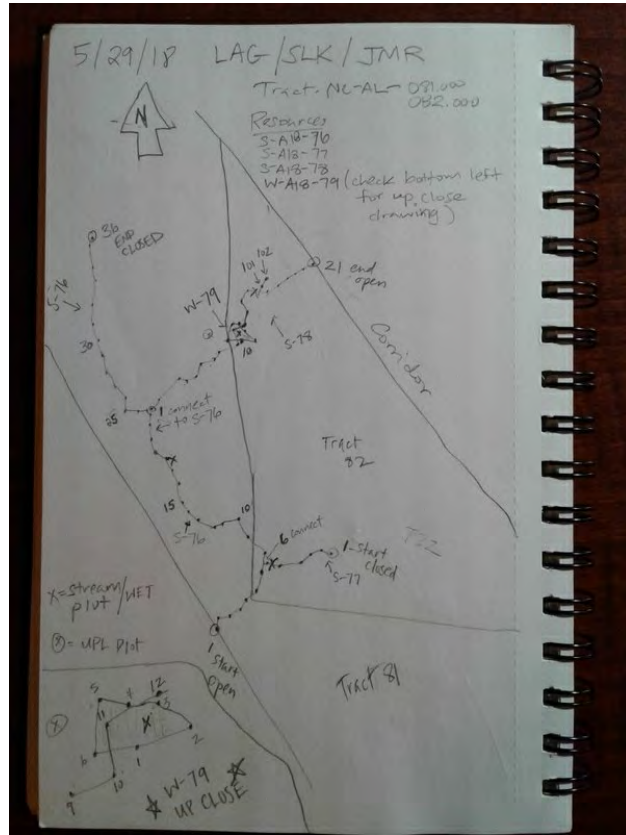 5/29/18 LAG/SLK/JMR
Tract. NC-AL- 081.000
082.000
N
Resources
S-A18-76
S-A18-77
S-A18-78
W-A18-79 (check bottom left
for up close
drawing)
36
END
CLOSED
101 102
21 end
open
S-76
W-79
10
S-78
30
Corridor
1 connect
to S-76
Tract
82
15
10
S-76
6 connect
1-start
closed
S-77
X=stream
plot/WET
= UPL plot
1 start
open
Tract 81
5 4 12
11 3
X
6 1 2
10
9
W-79
UP CLOSE